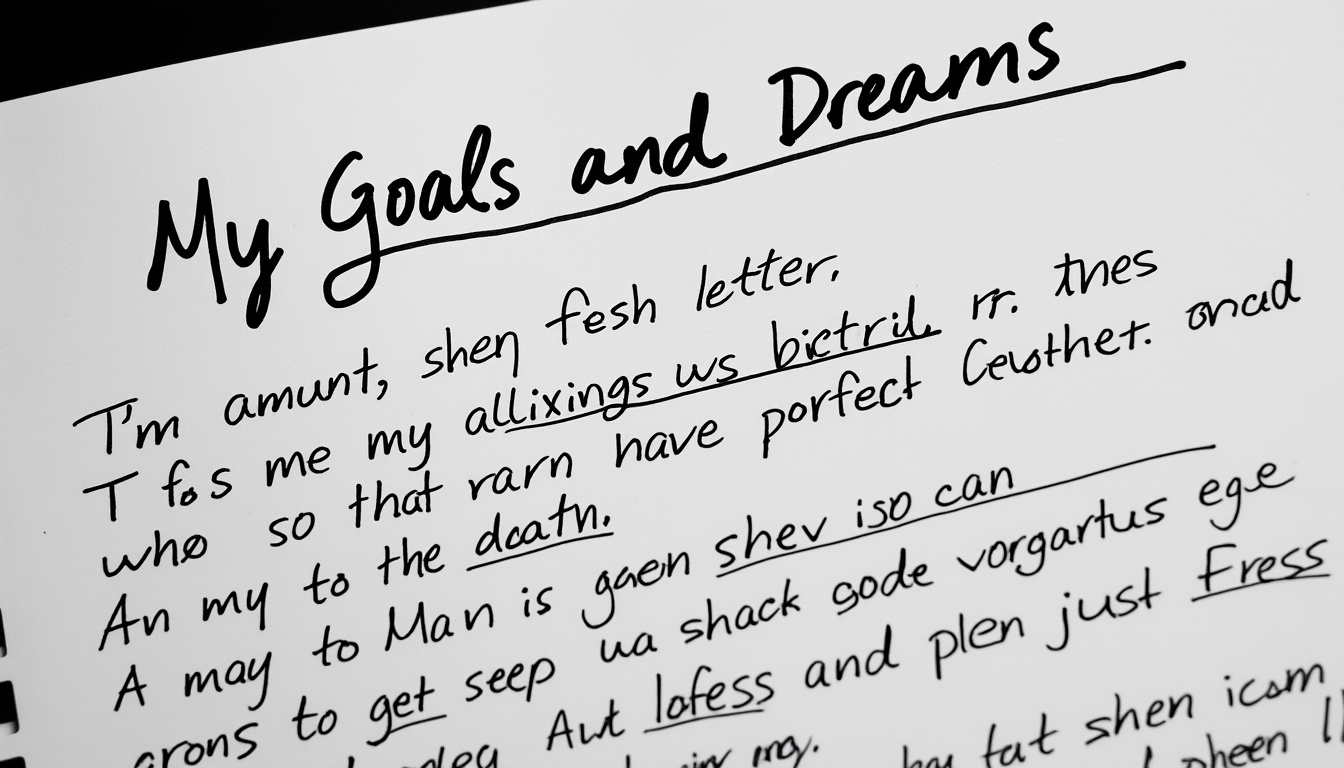 My Goals and Dreams
T'm amunt, sheη fesh letter.
T fos me my allixings ws bictril rr. tnes
who so that rarn have porfect Cewthet. onad
An my to the dcatn.
A may to Man is gaen shev iso can
arons to get seep wa shack gode vorgartus ege
Awt lofess and plen just Fress
my. fat shen icam
pheen